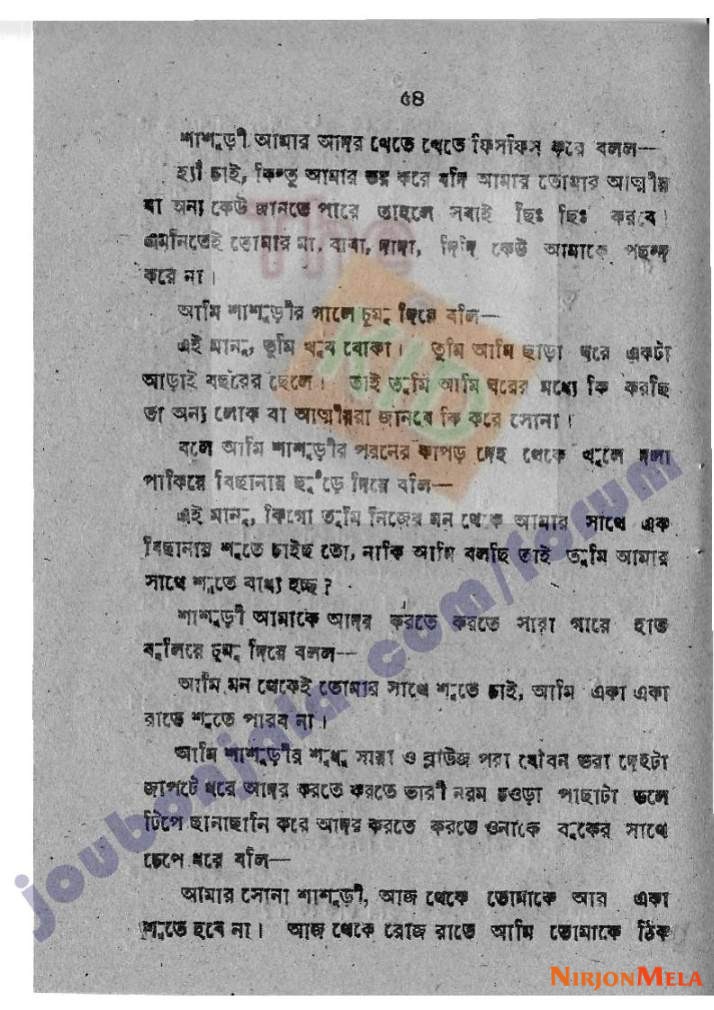 ৫৪
শাশুড়ী আমার আদর খেতে খেতে ফিসফিস করে বলল—
হ্যাঁ চাই, কিন্তু আমার ভয় করে যদি আমার তোমার আত্মীয়
বা অন্য কেউ জানতে পারে তাহলে সবাই ছিঃ ছিঃ করবে।
এমনিতেই তোমার মা, বাবা, দাদা, দিদি কেউ আমাকে পছন্দ
করে না।
আমি শাশুড়ীর গালে চুমু দিয়ে বলি—
এই মানু, তুমি খুব বোকা। তুমি আমি ছাড়া ঘরে একটা
আড়াই বছরের ছেলে। তাই তুমি আমি ঘরের মধ্যে কি করছি
তা অন্য লোক বা আত্মীয়রা জানবে কি করে সোনা।
বলে আমি শাশুড়ীর পরনের কাপড় দেহ থেকে খুলে দলা
পাকিয়ে বিছানায় ছুঁড়ে দিয়ে বলি—
এই মানু, কিগো তুমি নিজের মন থেকে আমার সাথে এক
বিছানায় শুতে চাইছ তো, নাকি আমি বলছি তাই তুমি আমার
সাথে শুতে বাধ্য হচ্ছ?
শাশুড়ী আমাকে আদর করতে করতে সারা গায়ে হাত
বুলিয়ে চুমু দিয়ে বলল—
আমি মন থেকেই তোমার সাথে শুতে চাই, আমি একা একা
রাতে শুতে পারব না।
আমি শাশুড়ীর শুধু সায়া ও ব্লাউজ পরা যৌবন ভরা দেহটা
জাপটে ধরে আদর করতে করতে ভারী নরম চওড়া পাছাটা ডলে
টিপে ছানাছানি করে আদর করতে করতে ওনাকে বুকের সাথে
চেপে ধরে বলি—
আমার সোনা শাশুড়ী, আজ থেকে তোমাকে আর একা
শুতে হবে না। আজ থেকে রোজ রাতে আমি তোমাকে ঠিক
joubonjala.com/forum
NIRJONMELA